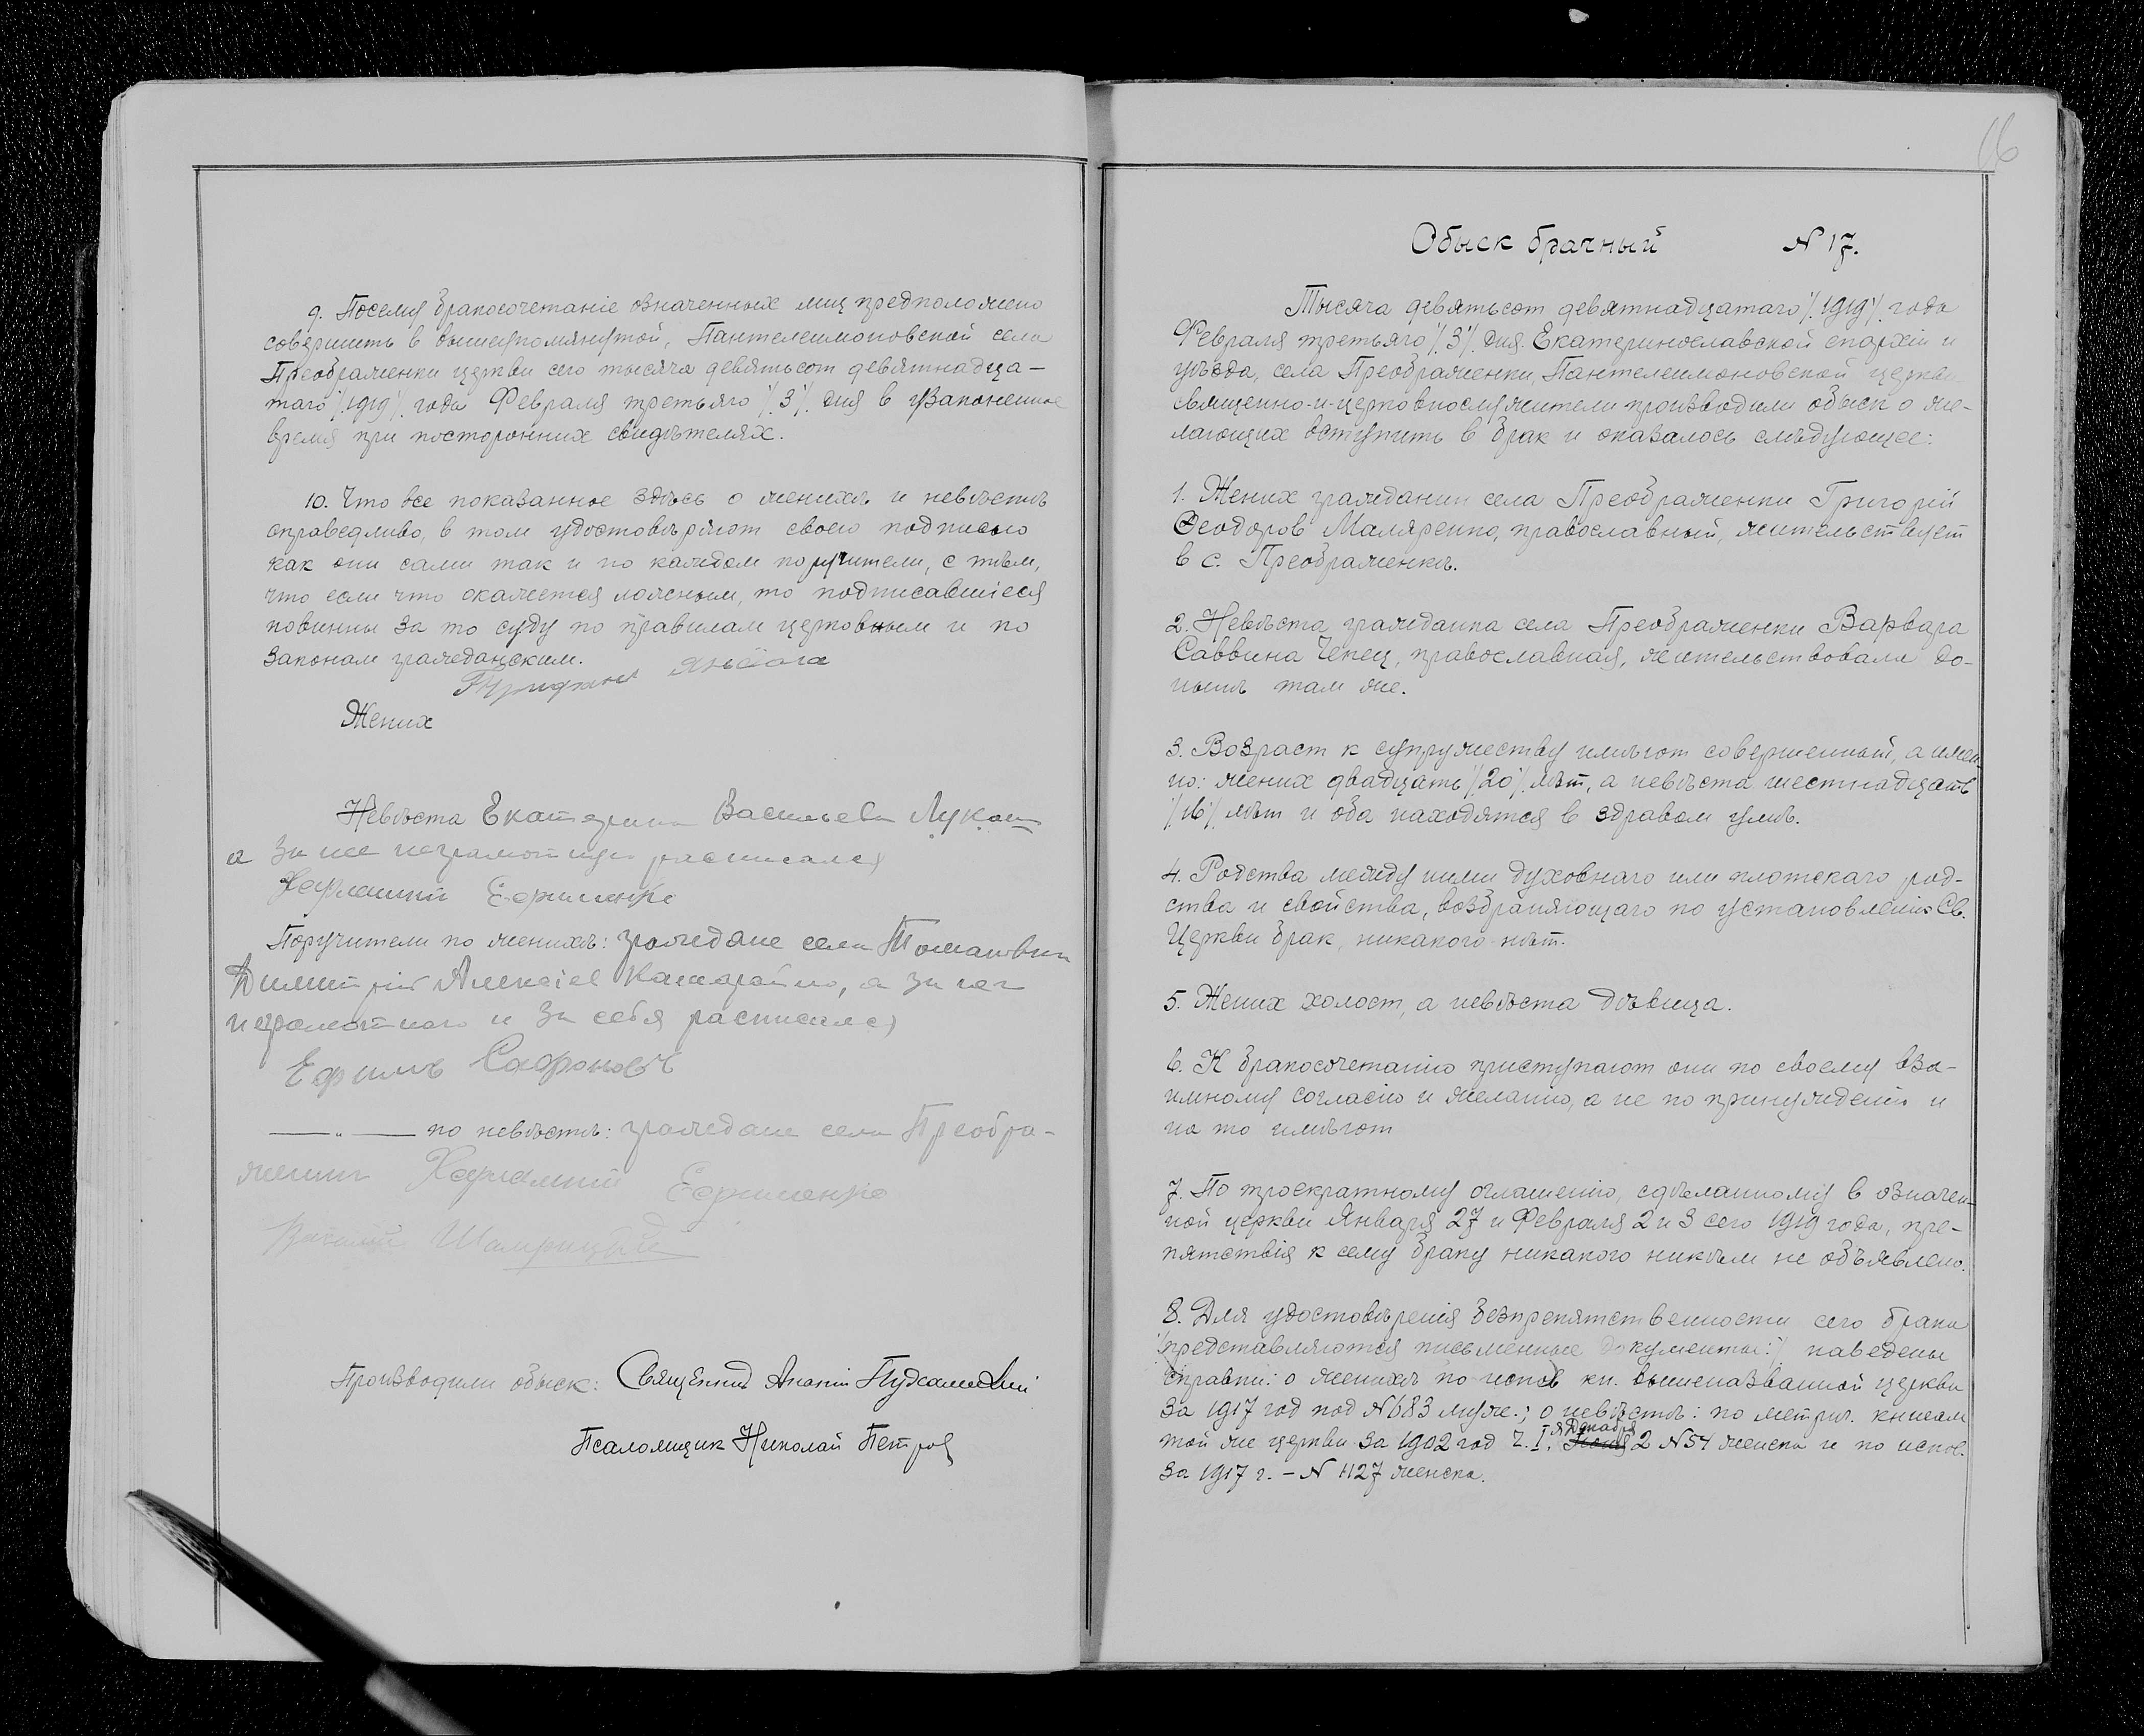 9. Посему бракосочетаніе означенных лиц предположено
совершить в вышеупомянутой, Пантелеимоновской села
Преображенки церкви сего тысяча девятьсот девятнадца-
таго /1919/ года Февраля третьяго /3/ дня в узаконенное
время при посторонних свидѣтелях.
10. Что все показанное здѣсь о женихѣ и невѣстѣ
справедливо, в том удостовѣряют своею подписью
как они сами так и по каждом поручители, с тѣм,
что если что окажется ложным, то подписавшіеся
повинны за то суду по правилам церковным и по
законам гражданским.
Жених
Невѣста Екатерина Васильева Лукаш
а за нее неграмотную расписался
Харлампий Ефименко
Поручители по женихѣ: граждане села
Димитрій Алексіев а за него
неграмотного и за себя расписался
Ефимъ Сафоновъ
—„— по невѣстѣ: граждане села Преобра-
женки Харлампий Ефименко
Производили обыск: Священник Ананій
Псаломщик Николай Петров
16
Обыск брачный N 17.
Тысяча девятьсот девятнадцатаго /1919/ года
Февраля третьяго /3/ дня Екатеринославской епархіи и
уѣзда, села Преображенки, Пантелеимоновской церкви
священно-и-церковнослужители производили обыск о же-
лающих вступить в брак и оказалось слѣдующее:
1. Жених гражданин села Преображенки Григорій
Феодоров Маляренко, православный, жительствует
в с. Преображенкѣ.
2. Невѣста гражданка села Преображенки Варвара
Саввина Чепец, православная, жительствовала до-
нынѣ там же.
3. Возраст к супружеству имѣют совершенный, а имен-
но: жених двадцать /20/ лѣт, а невѣста шестнадцать
/16/ лѣт и оба находятся в здравом умѣ.
4. Родства между ними духовнаго или плотскаго род-
ства и свойства, возбраняющаго по установленію Св.
Церкви брак, никакого нѣт.
5. Жених холост, а невѣста дѣвица.
6. К бракосочетанію приступают они по своему вза-
имному согласію и желанію, а не по принужденію и
на то имѣют
7. По троекратному оглашенію, сдѣланному в означен-
ной церкви Января 27 и Февраля 2 и 3 сего 1919 года, пре-
пятствія к сему браку никакого никѣм не объявлено.
8. Для удостовѣренія безпрепятственности сего брака
/представляются письменные документы:/ наведены
справки: о женихѣ по испов кн. вышеназванной церкви
за 1917 год под N 683 муж.; о невѣстѣ: по метрич. книгам
той же церкви за 1902 год ч. I, Декабря 2 N 54 женска и по испов.
за 1917 г. - N 1127 женска.